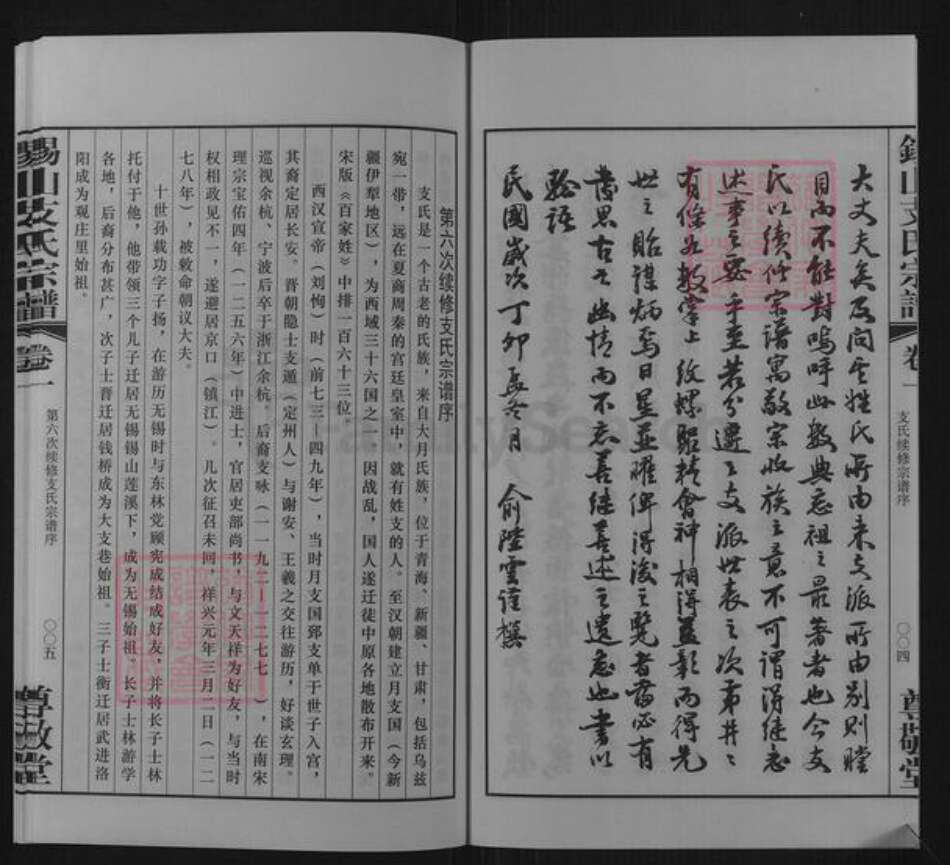 大丈夫矣及问其姓氏所由来支派所由别则瞠
目而不能對嗚呼此数典忘祖之最著者也今支
氏以續修宗譜寓敬宗收族之意不可謂得继志
述事之要乎至若分遷之支派世表之次第井井
有條如数掌上纹螺聚精會神相得益彰而得先
世之貽謀炳焉日星並曜俾得後之覽者當必有
思古之幽情而不忘善继善述之遺意也書以
民國歲次丁卯孟冬月 俞陸雲謹撰
支氏续修宗谱序
〇〇四
尊敬堂
第六次续修支氏宗谱序
支氏是一个古老的氏族，来自大月氏族，位于青海、新疆、甘肃，包括乌兹
宛一带，远在夏商周秦的宫廷皇室中，就有姓支的人。至汉朝建立月支国（今新
疆伊犁地区），为西域三十六国之一，因战乱，国人遂迁徒中原各地散布开来。
宋版《百家姓》中排一百六十三位
西汉宣帝（刘恂）时（前七三－四九年），当时月支国郅支单于世子入宫，
其裔定居长安。晋朝隐士支遁（定州人）与谢安、王羲之交往游历，好谈玄理。
巡视余杭、宁波后卒于浙江余杭。后裔支咏（一一九二－一二七七），在南宋
理宗宝佑四年（一二五六年）中进士，官居吏部尚书，与文天祥为好友，与当时
权相政见不一，遂避居京口（镇江）。几次征召未回，祥兴元年三月二日（一二
七八年），被敕命朝议大夫。
十世孙载功字子扬，在游历无锡时与东林党顾宪成结成好友，并将长子士林
托付于他，他带领三个儿子迁居无锡锡山莲溪下，成为无锡始祖。长子士林游学
各地，后裔分布甚广，次子士晋迁居钱桥成为大支巷始祖。三子士衡迁居武进洛
阳成为观庄里始祖。
錫山支氏宗譜 卷一
第六次续修支氏宗谱序
〇〇五
尊敬堂